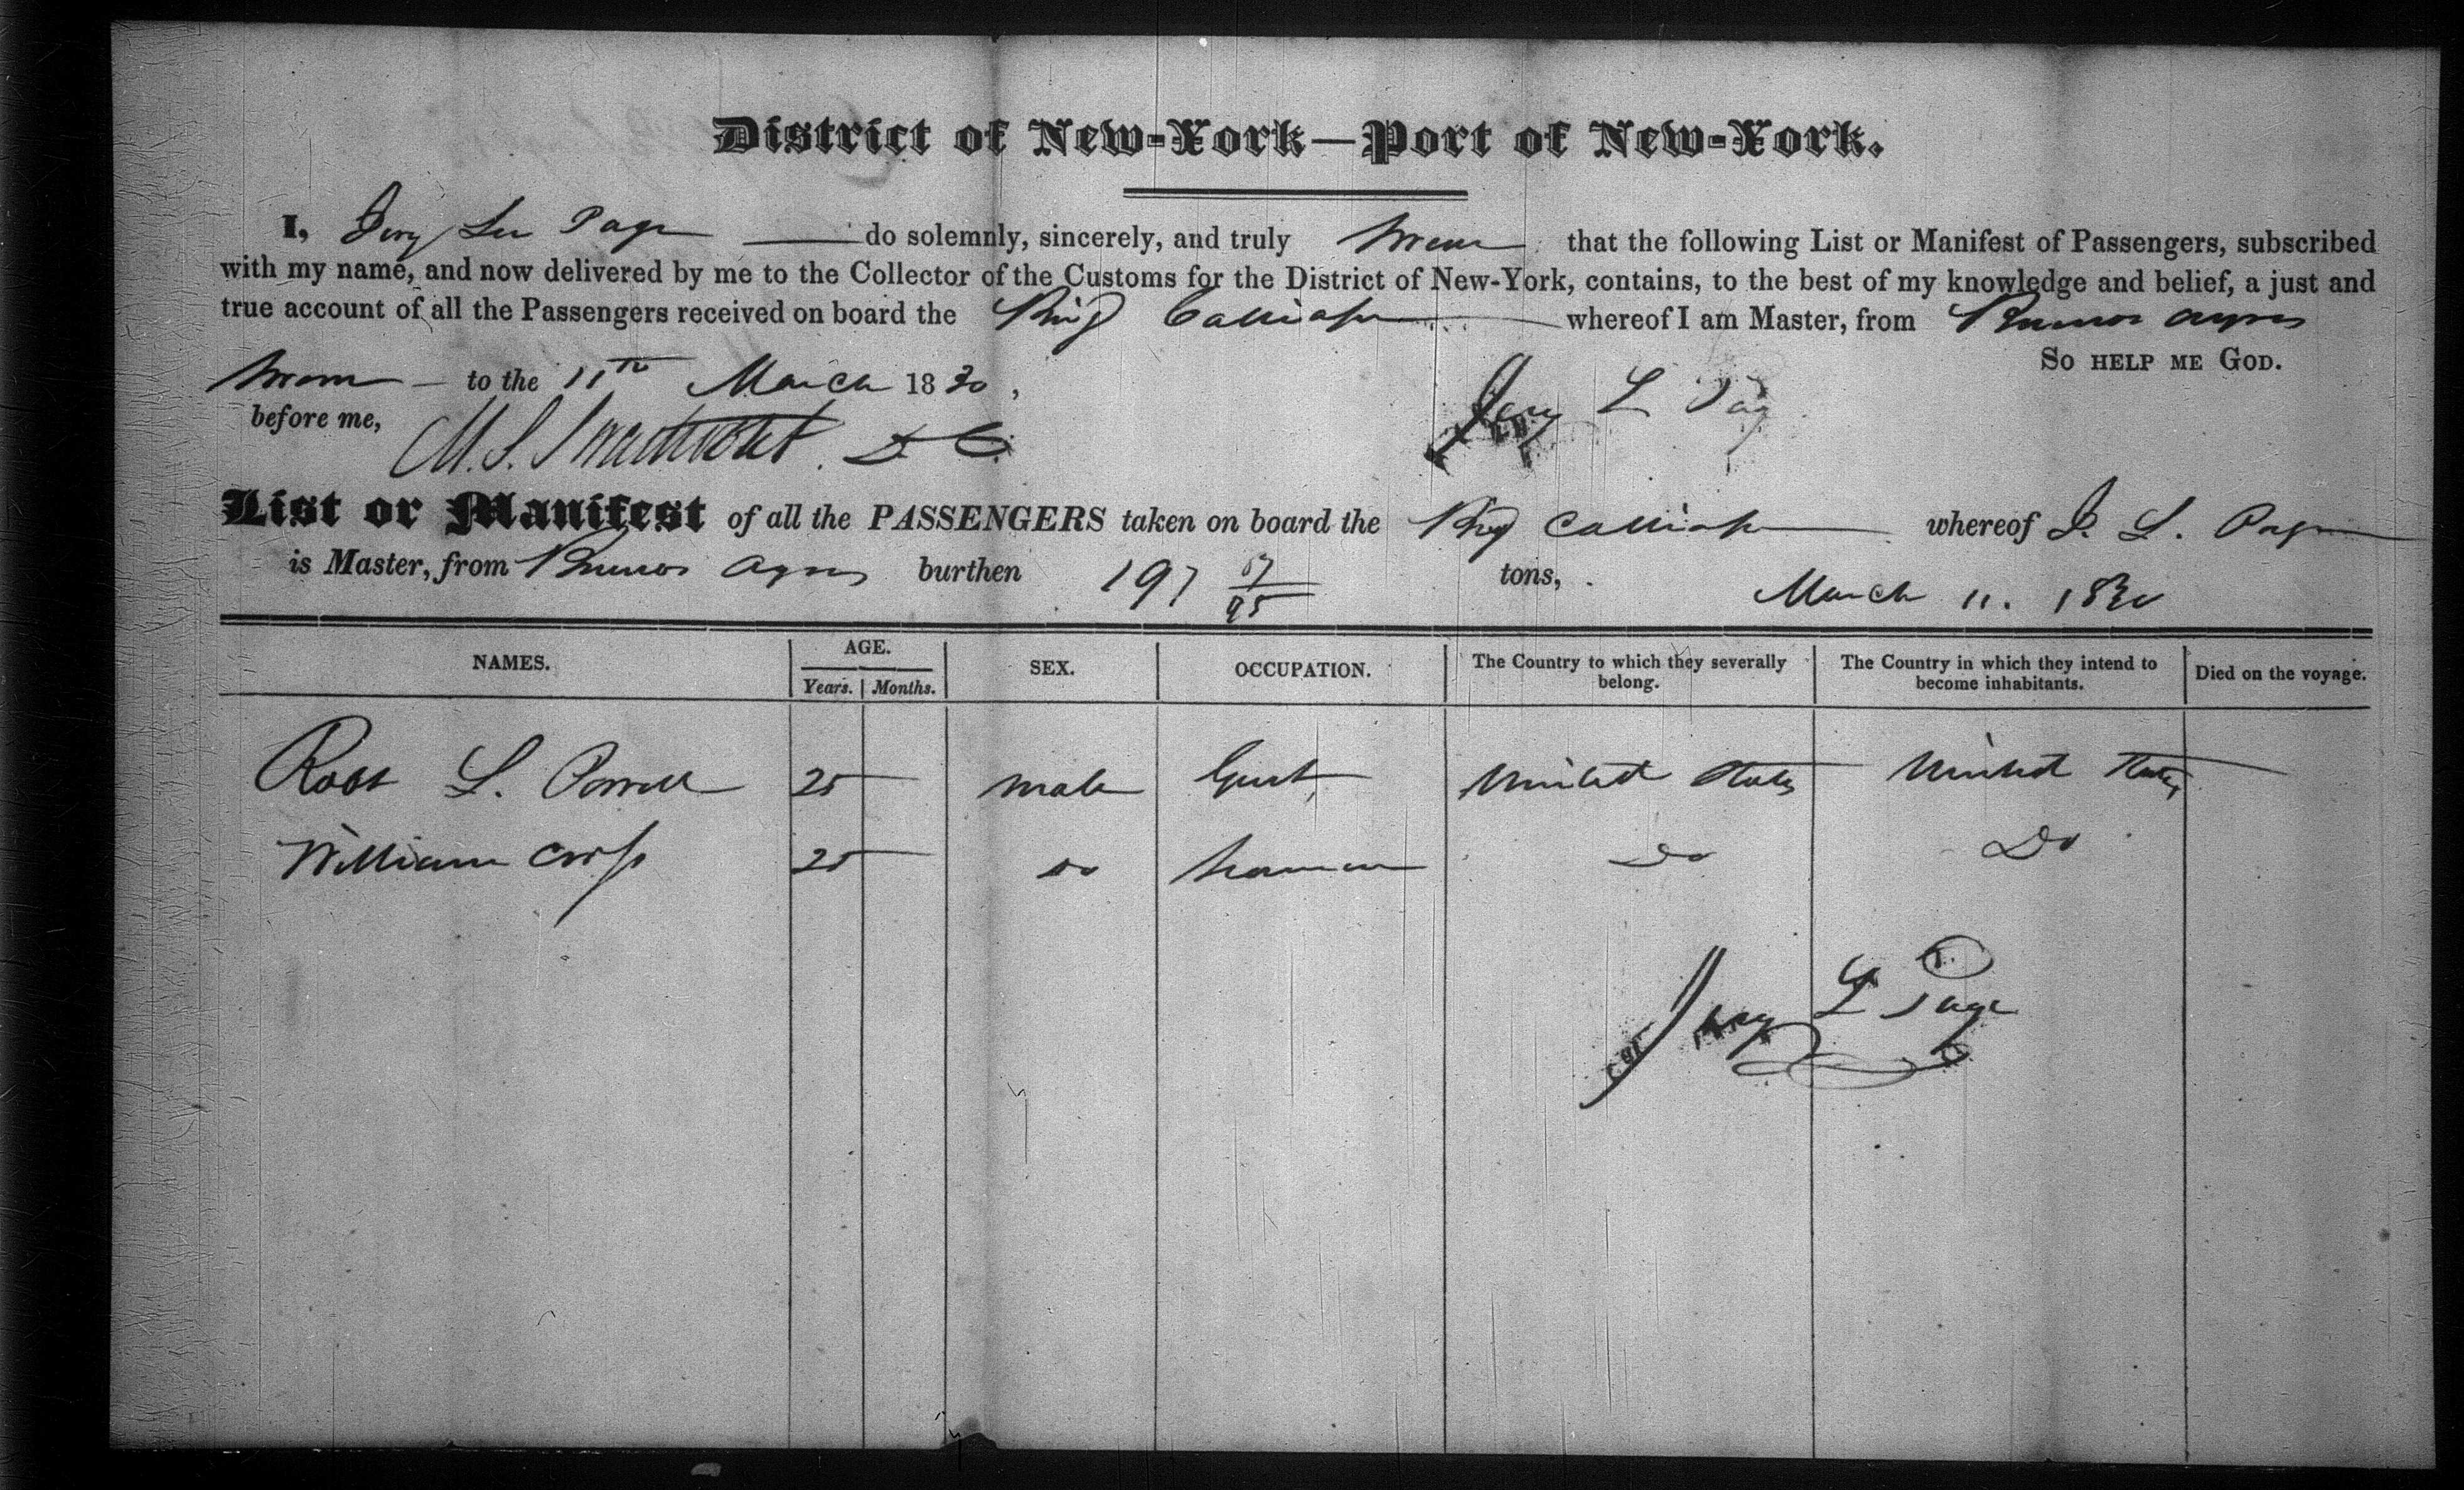 District of New-York—Port of New-York.
I, Jery Lee Page do solemnly, sincerely, and truly swear that the following List or Manifest of Passengers, subscribed
with my name, and now delivered by me to the Collector of the Customs for the District of New-York, contains, to the best of my knowledge and belief, a just and
true account of all the Passengers received on board the Brig Calliope whereof I am Master, from Buenos Ayres
So help me God.
Sworn to the 11th March 1830,
before me, M. S. Swartwout D C. L Page
List or Manifest of all the PASSENGERS taken on board the Brig Calliope whereof J. L. Page
is Master, from Buenos Ayres burthen 197 57/95 tons, March 11. 1830
NAMES. AGE. Years. Months. SEX. OCCUPATION. The Country to which they severally belong. The Country in which they intend to become inhabitants. Died on the voyage.
Robt L. 25 male Gent United States United States
William Crisp 25 Do Seaman Do Do
L Page